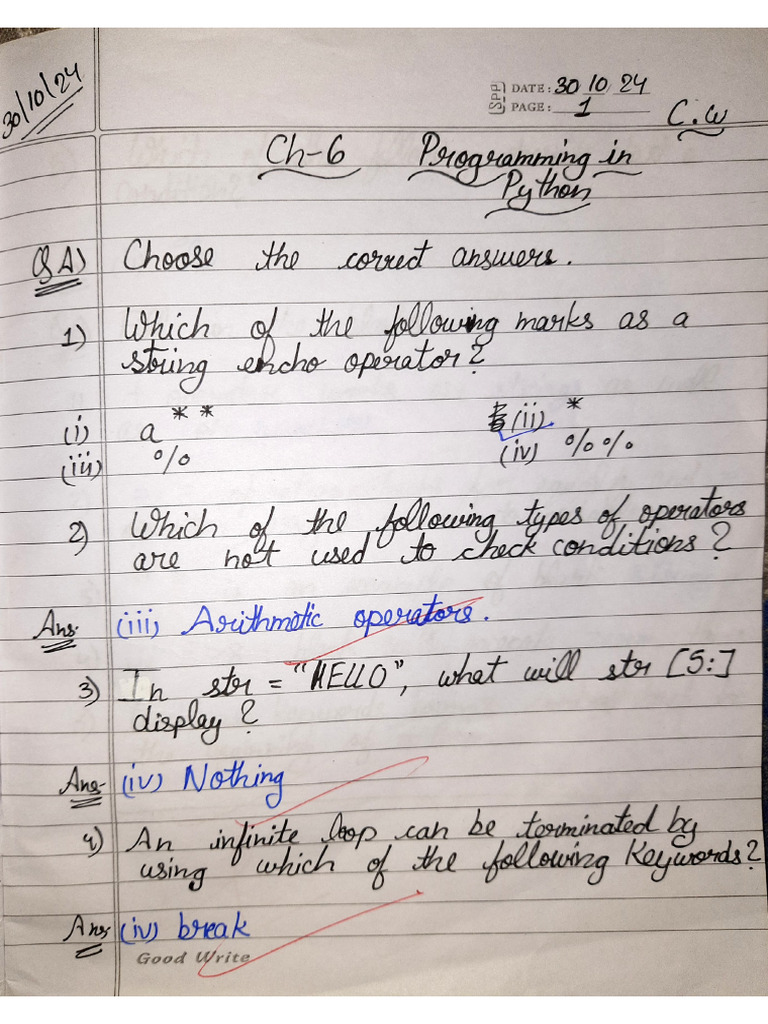 30/10/24
SPP DATE: 30 10 24
PAGE: 1
C.W
Ch-6 Programming in
Python
Q A) Choose the correct answers.
1) Which of the following marks as a
string encho operator?
(i) a** (ii) *
(iii) % (iv) %%
2) Which of the following types of operators
are not used to check conditions?
Ans. (iii) Arithmetic operators.
3) In str = "HELLO", what will str [5:]
display?
Ans- (iv) Nothing
4) An infinite loop can be terminated by
using which of the following Keywords?
Ans (iv) break
Good Write